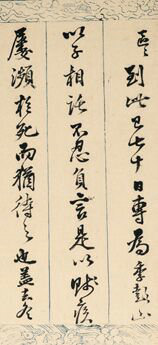 到此已七十日專為季彭山
以子相託不忍負言是以賤疾
屢瀕於死而猶待之也蓋去冬